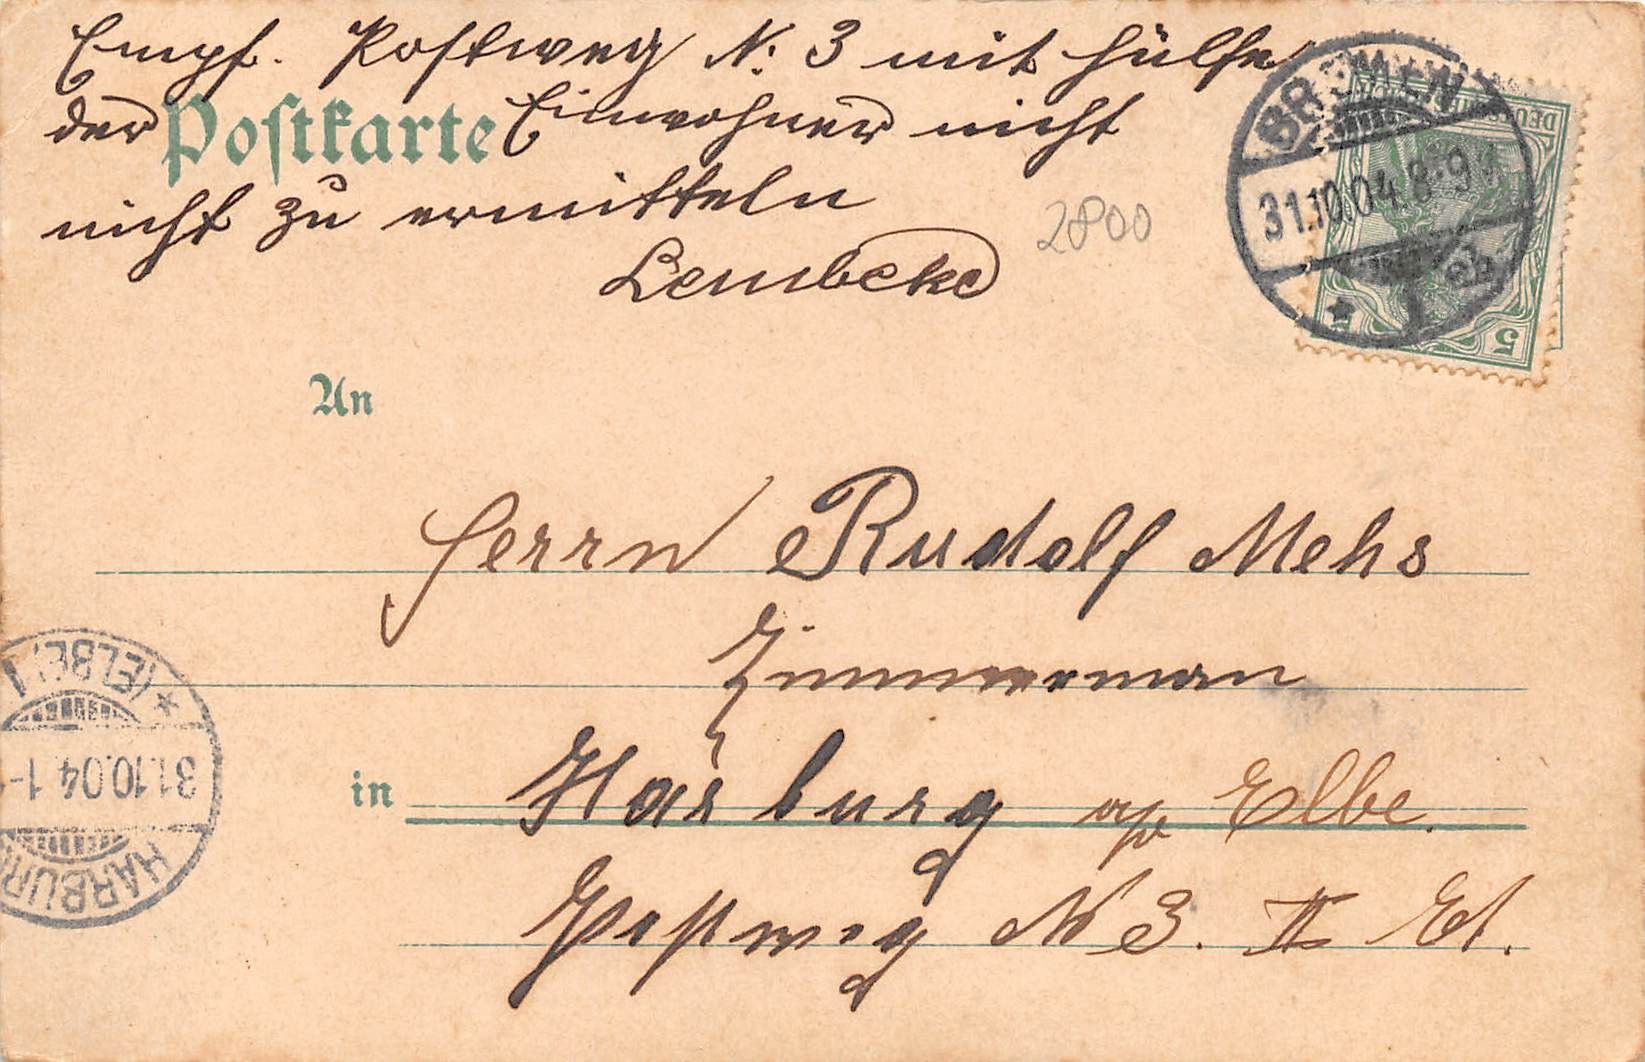 Empf. Postweg N: 3 mit Hülfe
der Einwohner nicht
Postkarte
nicht zu ermitteln
Lembcke
2800
BREMEN
31.10.04.8-9
DEUTSCHES REICH
5
An
Herrn Rudolf Mehs
Zimmerman
in Harburg a/ Elbe.
Postweg N 3. II Et.
HARBURG
31.10.04.1-
(ELBE) 1